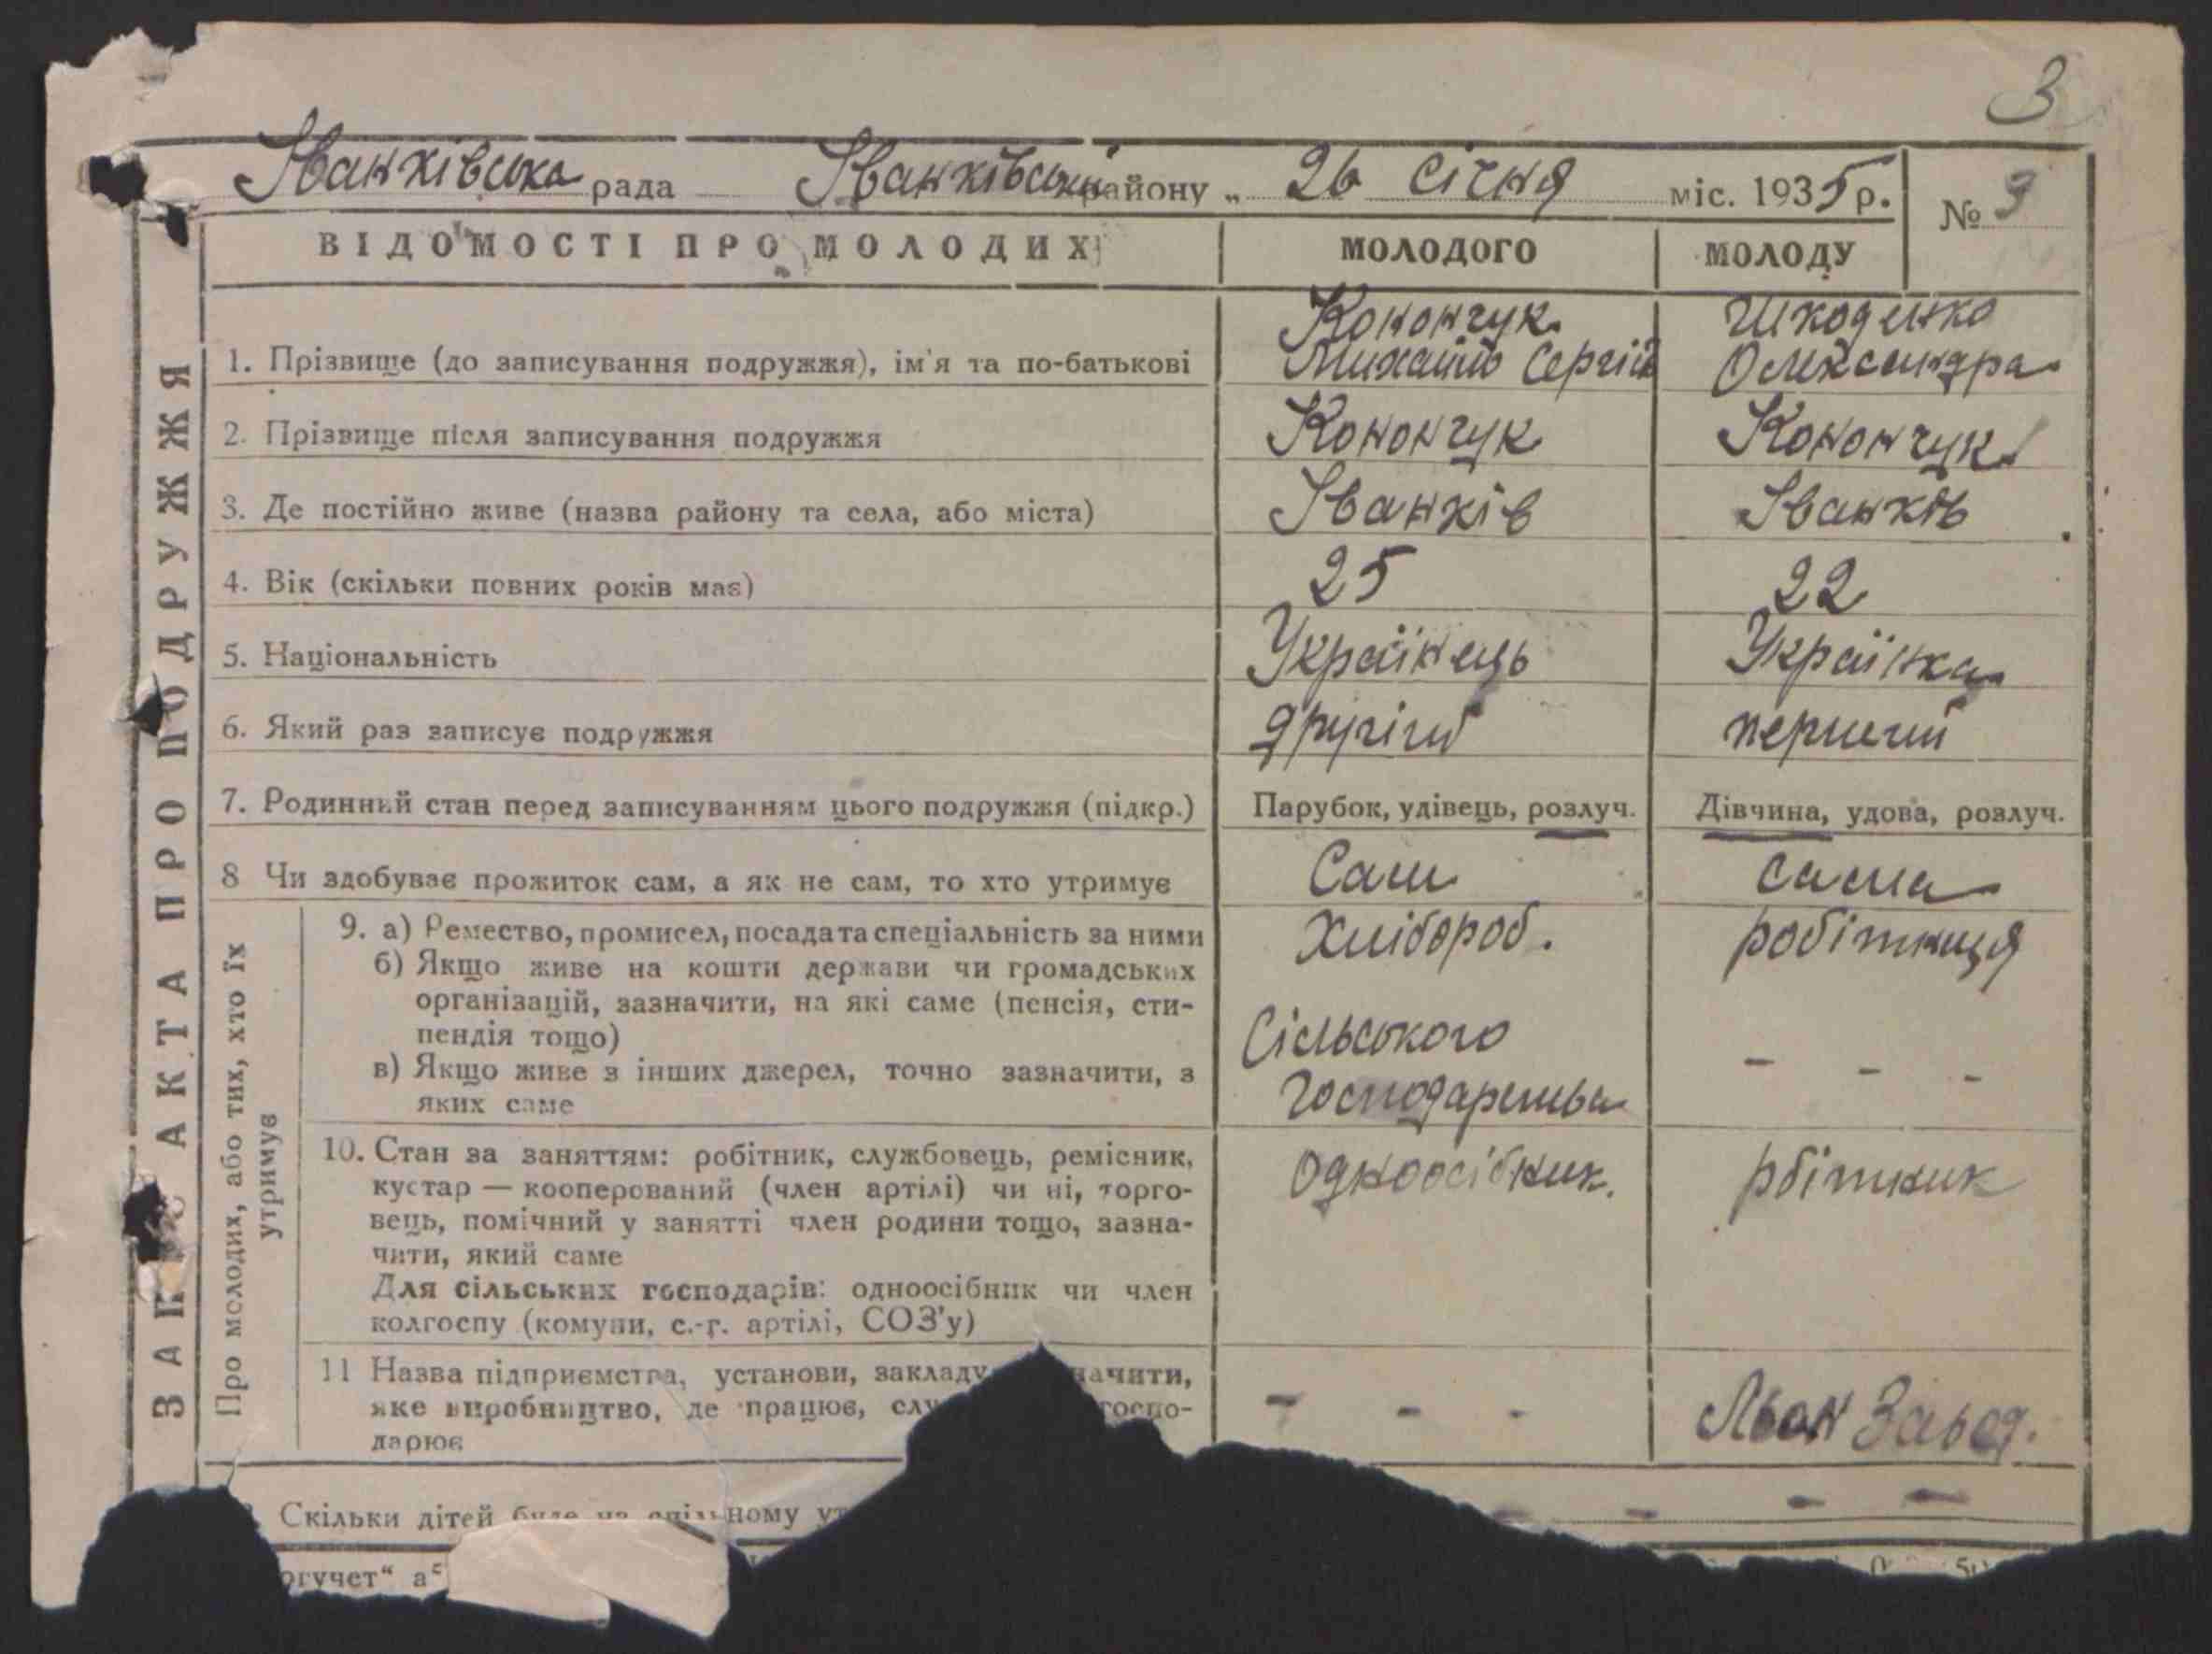 3
Іванківська рада Іванківський району „ 26 січня міс. 1935 р.
№ 3
ВІДОМОСТІ ПРО МОЛОДИХ МОЛОДОГО МОЛОДУ
ЗАПИС АКТА ПРО ПОДРУЖЖЯ
Конончук Шкоденко
1. Прізвище (до записування подружжя), ім'я та по-батькові Михайло Сергій Олександра
2. Прізвище після записування подружжя Конончук Конончук
3. Де постійно живе (назва району та села, або міста) Іванків Іванків
4. Вік (скільки повних років має) 25 22
5. Національність Українець Українка
6. Який раз записує подружжя другий перший
7. Родинний стан перед записуванням цього подружжя (підкр.) Парубок, удівець, розлуч. Дівчина, удова, розлуч.
8 Чи здобуває прожиток сам, а як не сам, то хто утримує Сам сама
Про молодих, або тих, хто їх
утримує
9. а) Ремество, промисел, посада та спеціальність за ними Хлібороб. робітниця
б) Якщо живе на кошти держави чи громадських
організацій, зазначити, на які саме (пенсія, сти-
пендія тощо) Сільського
в) Якщо живе з інших джерел, точно зазначити, з - - -
яких саме господарства
10. Стан за заняттям: робітник, службовець, ремісник, одноосібник. рбітник
кустар — кооперований (член артілі) чи ні, торго-
вець, помічний у занятті член родини тощо, зазна-
чити, який саме
Для сільських господарів: одноосібник чи член
колгоспу (комуни, с.-г. артілі, СОЗ'у)
11 Назва підприємства, установи, закладу начити,
яке виробництво, де працює, слу госпо- - - - Льон Завод.
дарює
Скільки дітей буде на спільному ут - - - -
огучет“